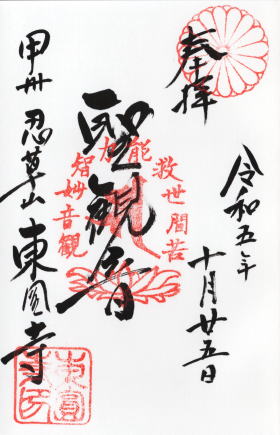 奉拝
令和五年
十月廿五日
聖観音
観音妙智力
能救世間苦
甲州 忍草山 東圓寺